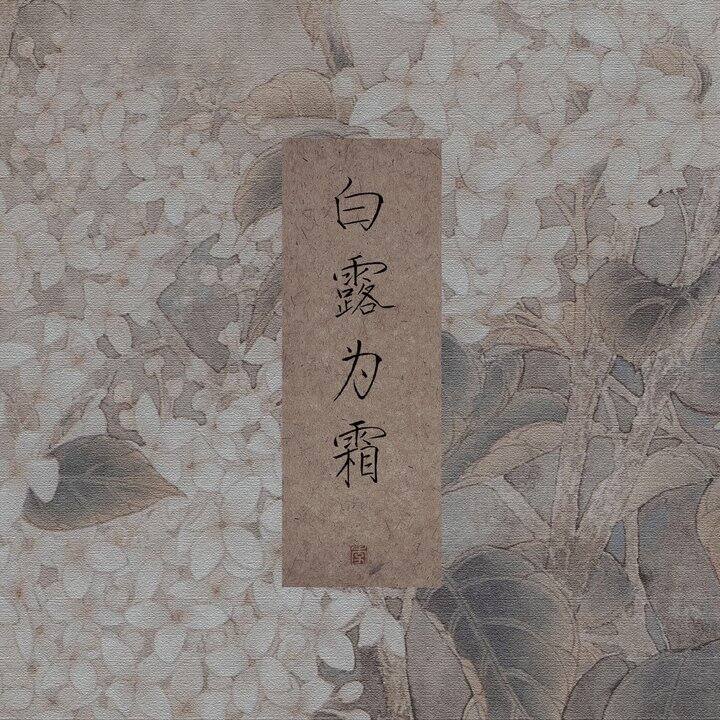 白露为霜